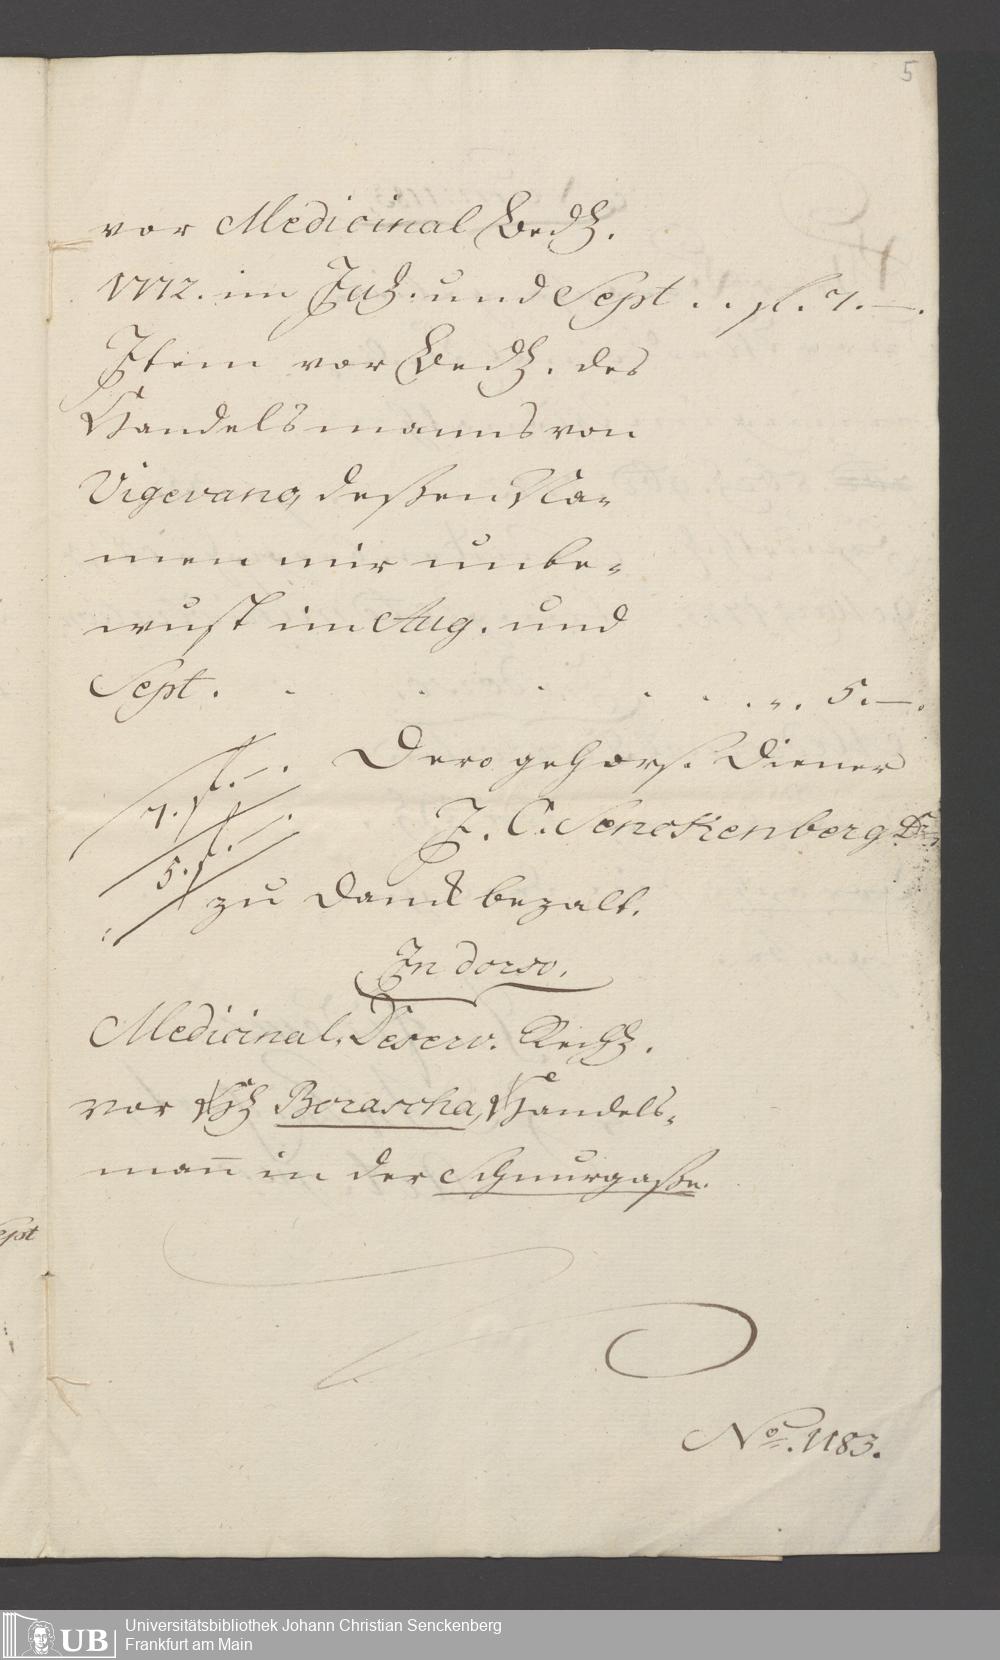 5
vor Medicinal Bedg.
1772. im Jul. und Sept . . fl. 7.—.
Item vor Bedg. des
Handelsmanns von
Vigevano, deßen Na-
men mir unbe-
wust im Aug. und
Sept . . . . . . . . „ . 5.—.
Dero gehors. Diener
7. fl. —.
J. C. Senckenberg Dr.
5. fl. —.
zu Danck bezalt.
In dorso.
Medicinal. Deserv. Rechg.
vor H. Borascha, Handels-
man̄ in der Schnurgaße.
ept
No. 1183.
UB
Universitätsbibliothek Johann Christian Senckenberg
Frankfurt am Main